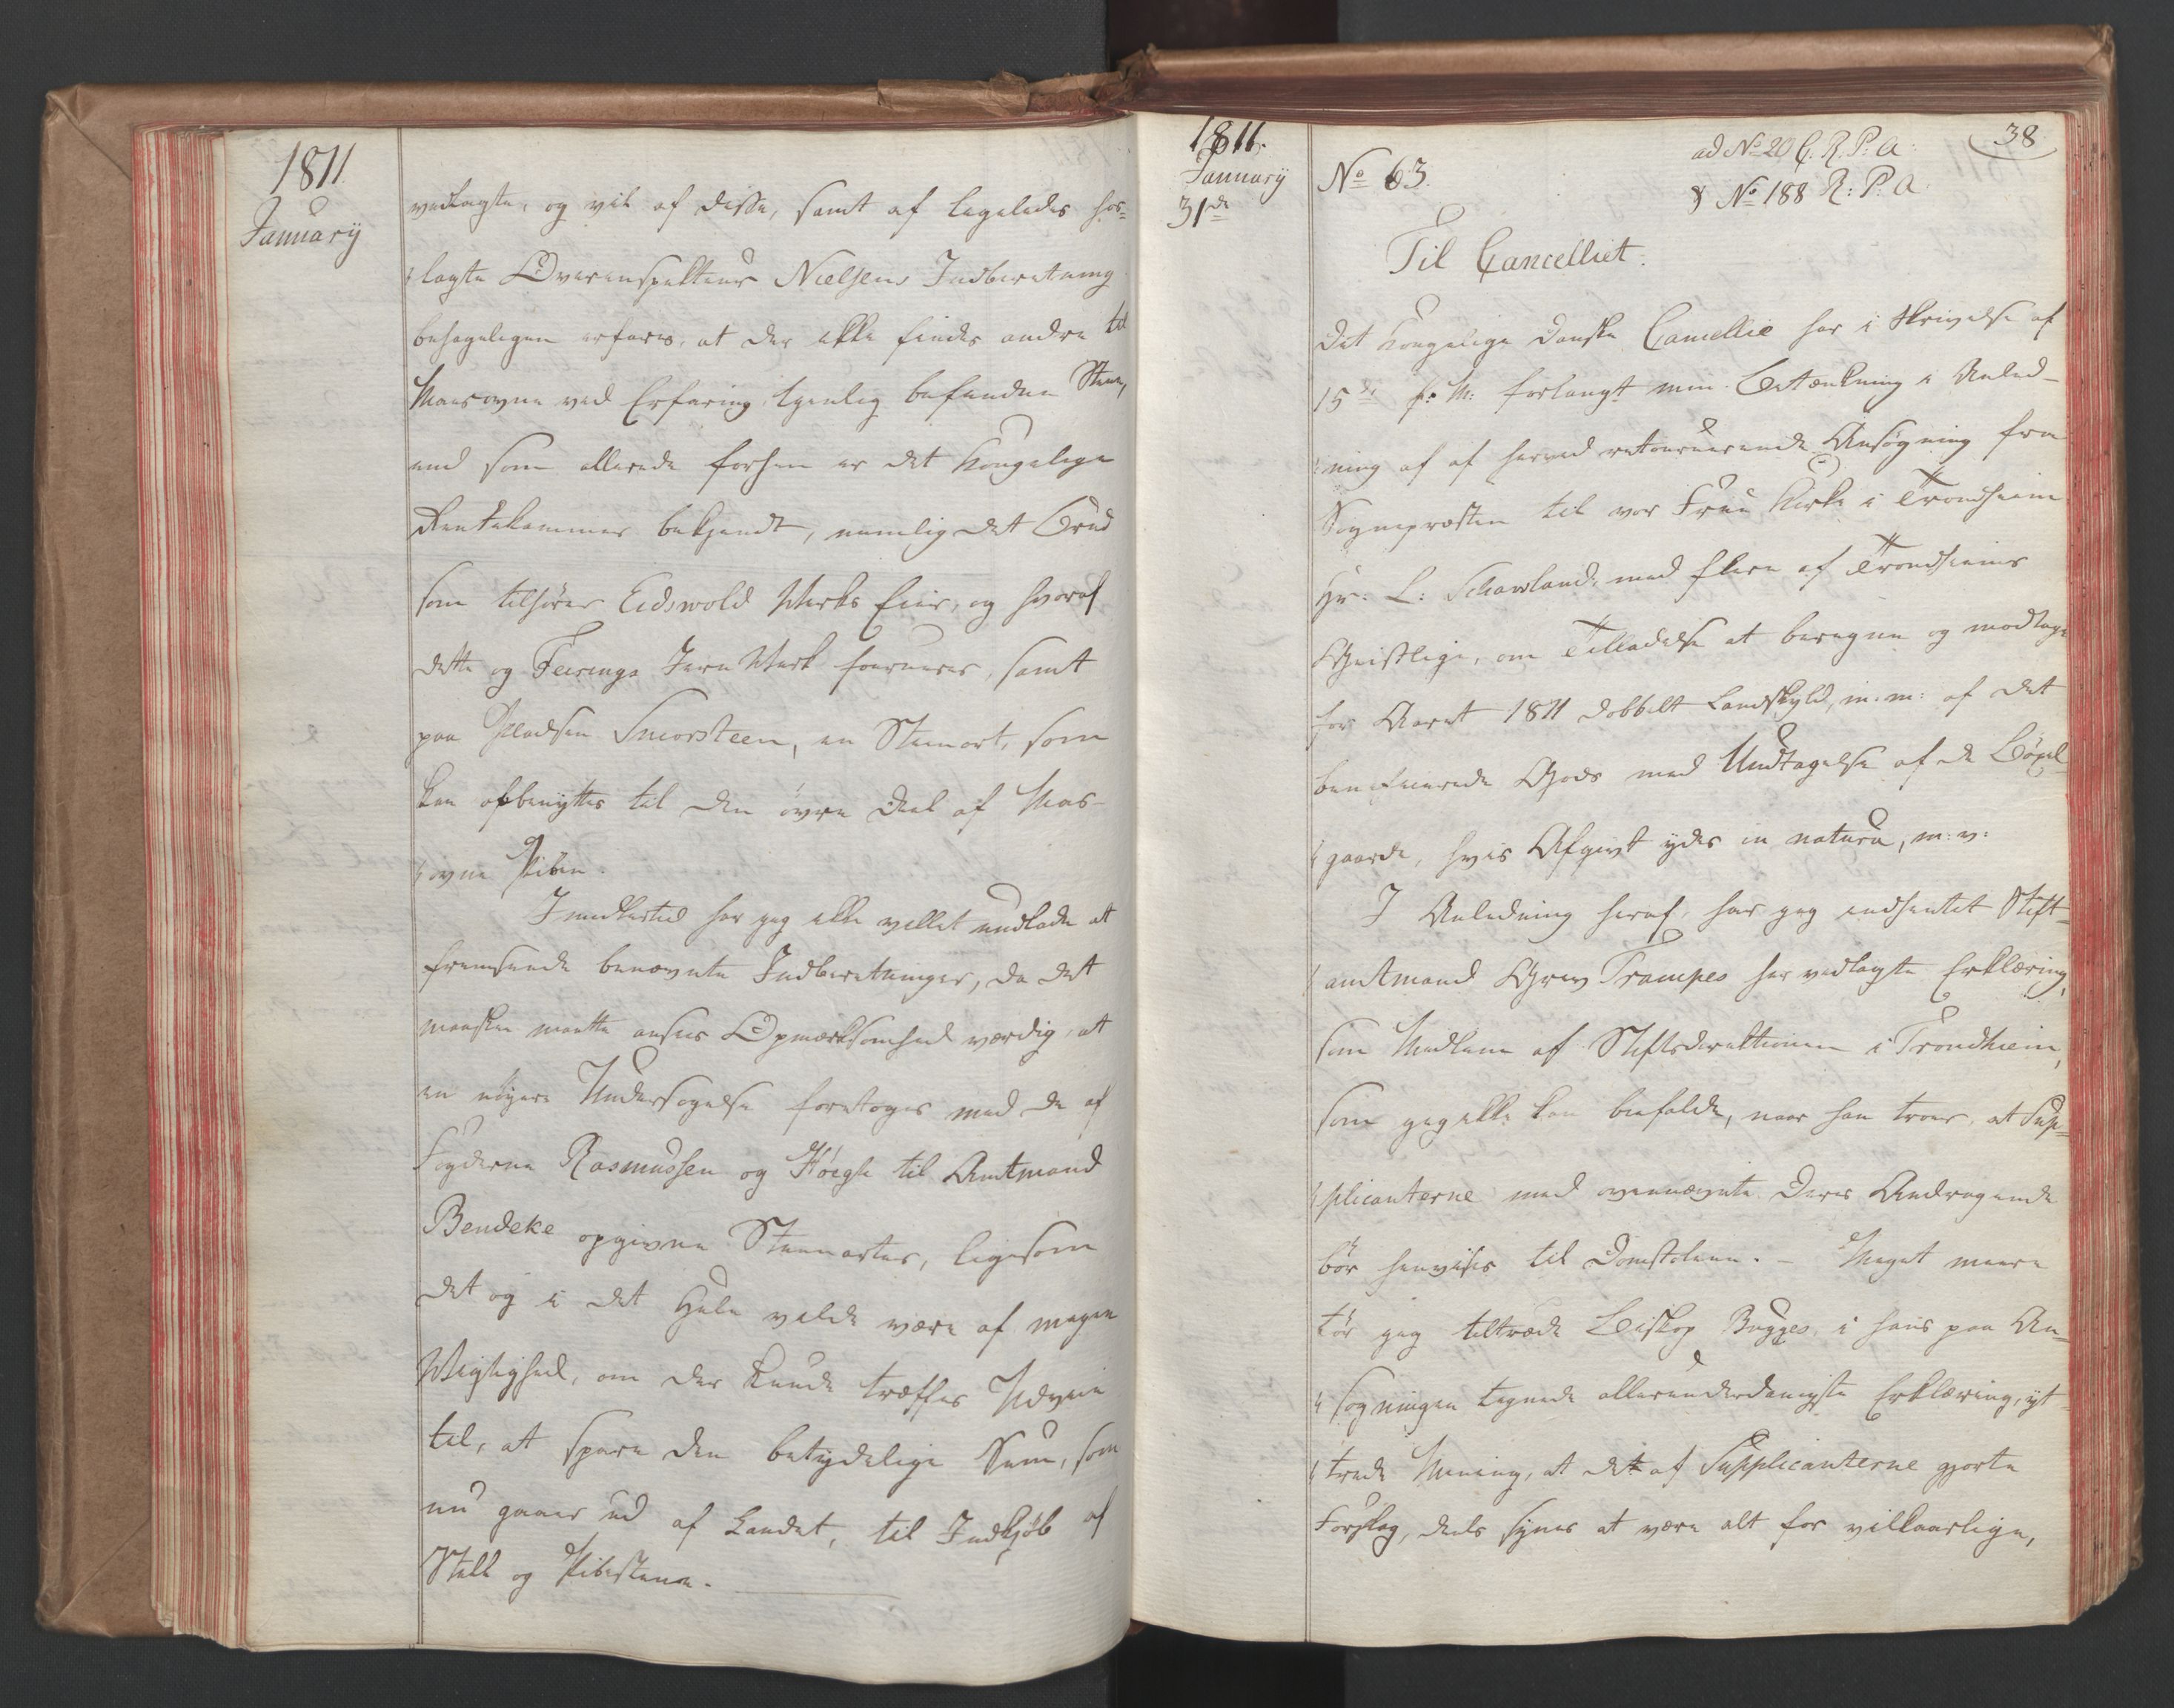 1811.
Januarij
vedlagte, og vil af disse, samt af ligeledes hos-
lagte Overinspekteur Nielsens Indberetning
behageligen erfares, at der ikke findes andre til
Masovne ved Erfaring tjenlig befunden Steen,
end som allerede forhen er det Kongelige
Rentekammer bekjendt, nemlig det Brud
som tilhører Eidswold Werks Eier, og hvoraf
dette og Feirings Jern Werk fourneres, samt
paa Pladsen Smorsteen, en Steenart, som
kan afbenyttes til den øvre Deel af Mas-
ovne Piben.
Imidlertid har jeg ikke villet undlade at
fremsende benævnte Indberetninger, da det
maaskee maatte ansees Opmærksomhed værdig, at
en nøiere Undersøgelse foretoges med de af
Fogderne Rasmussen og Høegh til Amtmand
Bendeke opgivne Steenarter, ligesom
det og i det Hele vilde være af megen
Wigtighed, om der kunde træffes Udveie
til, at spare den betydelige Sum, som
nu gaaer ud af Landet, til Indkjøb af
Stell og Pibestene.
1811.
Januarij
31de
No 63.
ad No 20 C. R. P. A.
& No 188 R: P. A.
38
Til Cancelliet.
Det Kongelige Danske Cancellie har i Skrivelse af
15de f: M: forlangt min Betænkning i Anled-
ning af af herved retournerende Ansøgning fra
Sognepræsten til vor Frue Kirke i Trondheim
Hr: L: Schavland, med flere af Trondhiems
Geistlige, om Tilladelse at beregne og modtage
for Aaret 1811 dobbelt Landskyld, m. m: af det
beneficerede Gods med Undtagelse af de Bøxel-
gaarde, hvis Afgivt ydes in natura, m: v:
I Anledning heraf, har jeg indhentet Stift-
amtmand Grev Trampes her vedlagte Erklæring,
som Medlem af Stiftsdirektionen i Trondhiem,
som jeg ikke kan biefalde, naar han troer, at Sup-
plicanterne med ovennævnte deres Andragende
bør henvises til Domstolene. – Meget meere
tør jeg tiltræde Biskop Bugges i hans paa An-
søgningen tegnede allerunderdanigste Erklæring, yt-
trede Mening, at det af Supplicanterne gjorte
Forslag, deels synes at være alt for vilkaarlige,